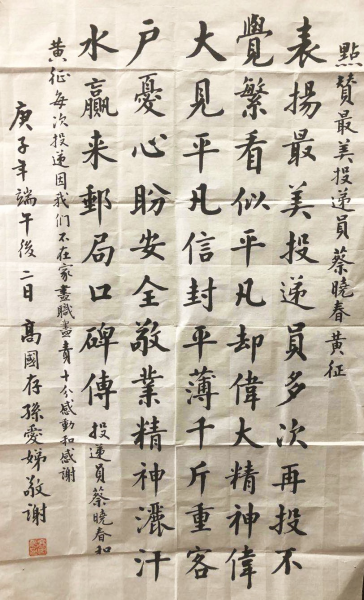 點贊最美投递員蔡曉春黄征
表揚最美投递員多次再投不
覺繁看似平凡却偉大精神偉
大見平凡信封平薄千斤重客
户憂心盼安全敬業精神灑汗
水贏来郵局口碑傳投递員蔡曉春和
黄征每次投递因我们不在家盡職盡責十分感動和感谢
庚子年端午後二日高國存孫愛娣敬谢